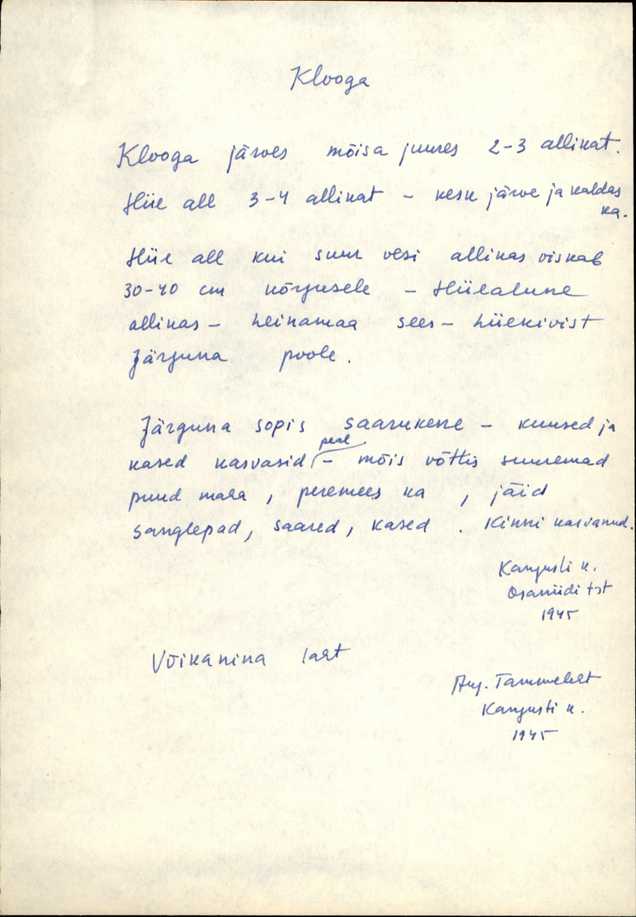 Klooga
Klooga järves mõisa juures 2-3 allikat.
Hiie all 3-4 allikat - kesk järve ja kaldas
ka.
Hiie all kui suur vesi allikas viskab
30-40 cm kõrgusele - Hiiealune
allikas - heinamaa sees - hiiekivist
Järguna poole.
Järguna sopis saarukene - kuused ja
kased kasvasid peal - mõis võttis suuremad
puud maha, peremees ka, jäid
sanglepad, saared, kased. Kinni kasvanud.
k.
tst
1945
Võikanina
Aug.
k.
1945